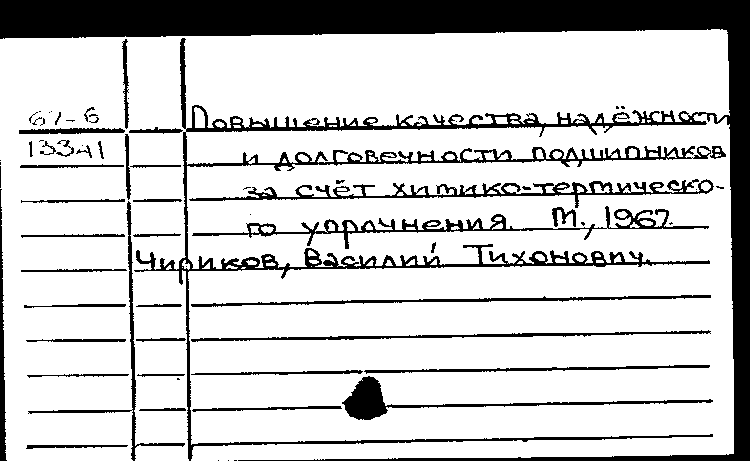 67-6 Повышение качества, надёжности
13341 и долговечности подшипников
за счёт химико-термическо-
го упрочнения. М., 1967.
Чириков, Василий Тихонович.